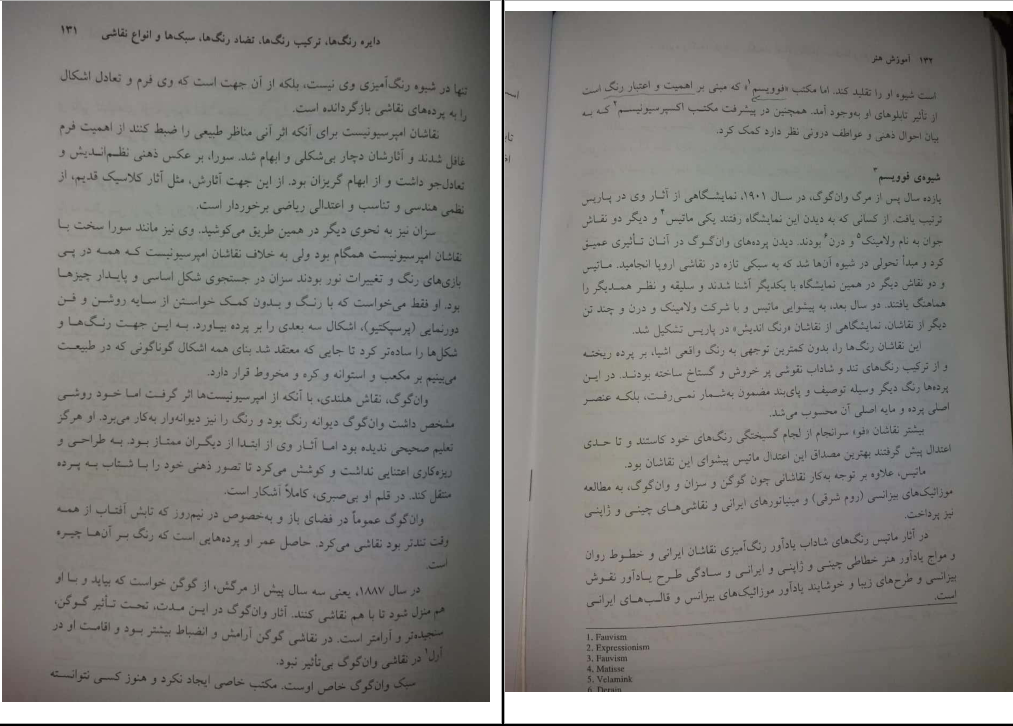 دایره رنگ‌ها، ترکیب رنگ‌ها، تضاد رنگ‌ها، سبک‌ها و انواع نقاشی ۱۳۱
تنها در شیوه رنگ‌آمیزی وی نیست، بلکه از آن جهت است که وی فرم و تعادل اشکال
را به پرده‌های نقاشی بازگردانده است.
نقاشان امپرسیونیست برای آنکه اثر آنی مناظر طبیعی را ضبط کنند از اهمیت فرم
غافل شدند و آثارشان دچار بی‌شکلی و ابهام شد. سورا، بر عکس ذهنی نظم‌اندیش و
تعادل‌جو داشت و از ابهام گریزان بود. از این جهت آثارش، مثل آثار کلاسیک قدیم، از
نظمی هندسی و تناسب و اعتدالی ریاضی برخوردار است.
سزان نیز به نحوی دیگر در همین طریق می‌کوشید. وی نیز مانند سورا سخت با
نقاشان امپرسیونیست همگام بود ولی به خلاف نقاشان امپرسیونیست که همه در پی
بازی‌های رنگ و تغییرات نور بودند سزان در جستجوی شکل اساسی و پایدار چیزها
بود. او فقط می‌خواست که با رنگ و بدون کمک خواستن از سایه روشن و فن
دورنمایی (پرسپکتیو)، اشکال سه بعدی را بر پرده بیاورد. به این جهت رنگ‌ها و
شکل‌ها را ساده‌تر کرد تا جایی که معتقد شد بنای همه اشکال گوناگونی که در طبیعت
می‌بینیم بر مکعب و استوانه و کره و مخروط قرار دارد.
وان‌گوگ، نقاش هلندی، با آنکه از امپرسیونیست‌ها اثر گرفت اما خود روشی
مشخص داشت وان‌گوگ دیوانه رنگ بود و رنگ را نیز دیوانه‌وار به‌کار می‌برد. او هرگز
تعلیم صحیحی ندیده بود اما آثار وی از ابتدا از دیگران ممتاز بود. به طراحی و
ریزه‌کاری اعتنایی نداشت و کوشش می‌کرد تا تصور ذهنی خود را با شتاب به پرده
منتقل کند. در قلم او بی‌صبری، کاملاً آشکار است.
وان‌گوگ عموماً در فضای باز و به‌خصوص در نیم‌روز که تابش آفتاب از همه
وقت تندتر بود نقاشی می‌کرد. حاصل عمر او پرده‌هایی است که رنگ بر آن‌ها چیره
است.
در سال ۱۸۸۷، یعنی سه سال پیش از مرگش، از گوگن خواست که بیاید و با او
هم منزل شود تا با هم نقاشی کنند. آثار وان‌گوگ در این مدت، تحت تأثیر گوگن،
سنجیده‌تر و آرامتر است. در نقاشی گوگن آرامش و انضباط بیشتر بود و اقامت او در
آرل۱ در نقاشی وان‌گوگ بی‌تأثیر نبود.
سبک وان‌گوگ خاص اوست. مکتب خاصی ایجاد نکرد و هنوز کسی نتوانسته
۱۳۲ آموزش هنر
است شیوه او را تقلید کند. اما مکتب «فوویسم۱» که مبنی بر اهمیت و اعتبار رنگ است
از تأثیر تابلوهای او به‌وجود آمد. همچنین در پیشرفت مکتب اکسپرسیونیسم۲ که به
بیان احوال ذهنی و عواطف درونی نظر دارد کمک کرد.
شیوه‌ی فوویسم۳
یازده سال پس از مرگ وان‌گوگ، در سال ۱۹۰۱، نمایشگاهی از آثار وی در پاریس
ترتیب یافت. از کسانی که به دیدن این نمایشگاه رفتند یکی ماتیس۴ و دیگر دو نقاش
جوان به نام ولامینک۵ و درن۶ بودند. دیدن پرده‌های وان‌گوگ در آنان تأثیری عمیق
کرد و مبدأ تحولی در شیوه آن‌ها شد که به سبکی تازه در نقاشی اروپا انجامید. ماتیس
و دو نقاش دیگر در همین نمایشگاه با یکدیگر آشنا شدند و سلیقه و نظر همدیگر را
هماهنگ یافتند. دو سال بعد، به پیشوایی ماتیس و با شرکت ولامینک و درن و چند تن
دیگر از نقاشان، نمایشگاهی از نقاشان «رنگ اندیش» در پاریس تشکیل شد.
این نقاشان رنگ‌ها را، بدون کمترین توجهی به رنگ واقعی اشیا، بر پرده ریخته
و از ترکیب رنگ‌های تند و شاداب نقوشی پر خروش و گستاخ ساخته بودند. در این
پرده‌ها رنگ دیگر وسیله توصیف و پای‌بند مضمون به‌شمار نمی‌رفت، بلکه عنصر
اصلی پرده و مایه اصلی آن محسوب می‌شد.
بیشتر نقاشان «فوه سرانجام از لجام گسیختگی رنگ‌های خود کاستند و تا حدی
اعتدال پیش گرفتند بهترین مصداق این اعتدال ماتیس پیشوای این نقاشان بود.
ماتیس، علاوه بر توجه به‌کار نقاشانی چون گوگن و سزان و وان‌گوگ، به مطالعه
موزائیک‌های بیزانسی (روم شرقی) و مینیاتورهای ایرانی و نقاشی‌های چینی و ژاپنی
نیز پرداخت.
در آثار ماتیس رنگ‌های شاداب یادآور رنگ‌آمیزی نقاشان ایرانی و خطوط روان
و مواج یادآور هنر خطاطی چینی و ژاپنی و ایرانی و سادگی طرح یادآور نقوش
بیزانسی و طرح‌های زیبا و خوشایند یادآور موزائیک‌های بیزانس و قالب‌های ایرانی
است.
1. Fauvism
2. Expressionism
3. Fauvism
4. Matisse
5. Velamink
6. Derain